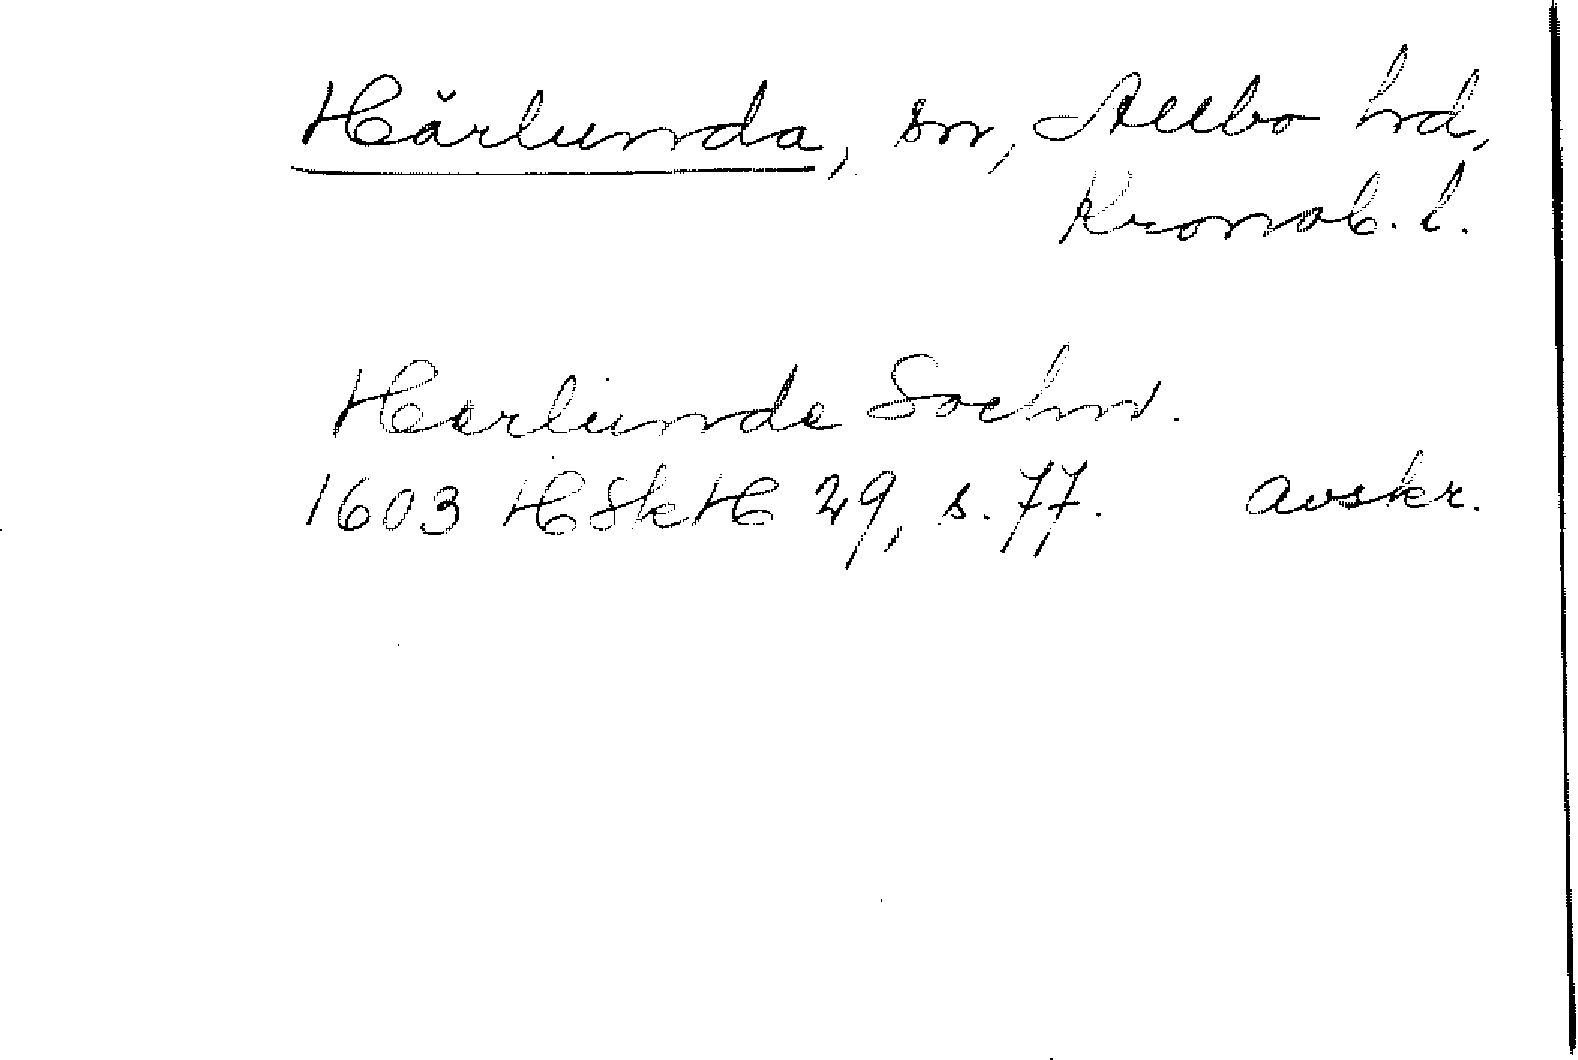 Härlunda, sn, Allbo hd,
Kronob. l.
Harlunda Sochn.
1603 HSkH 29, s. 77. avskr.